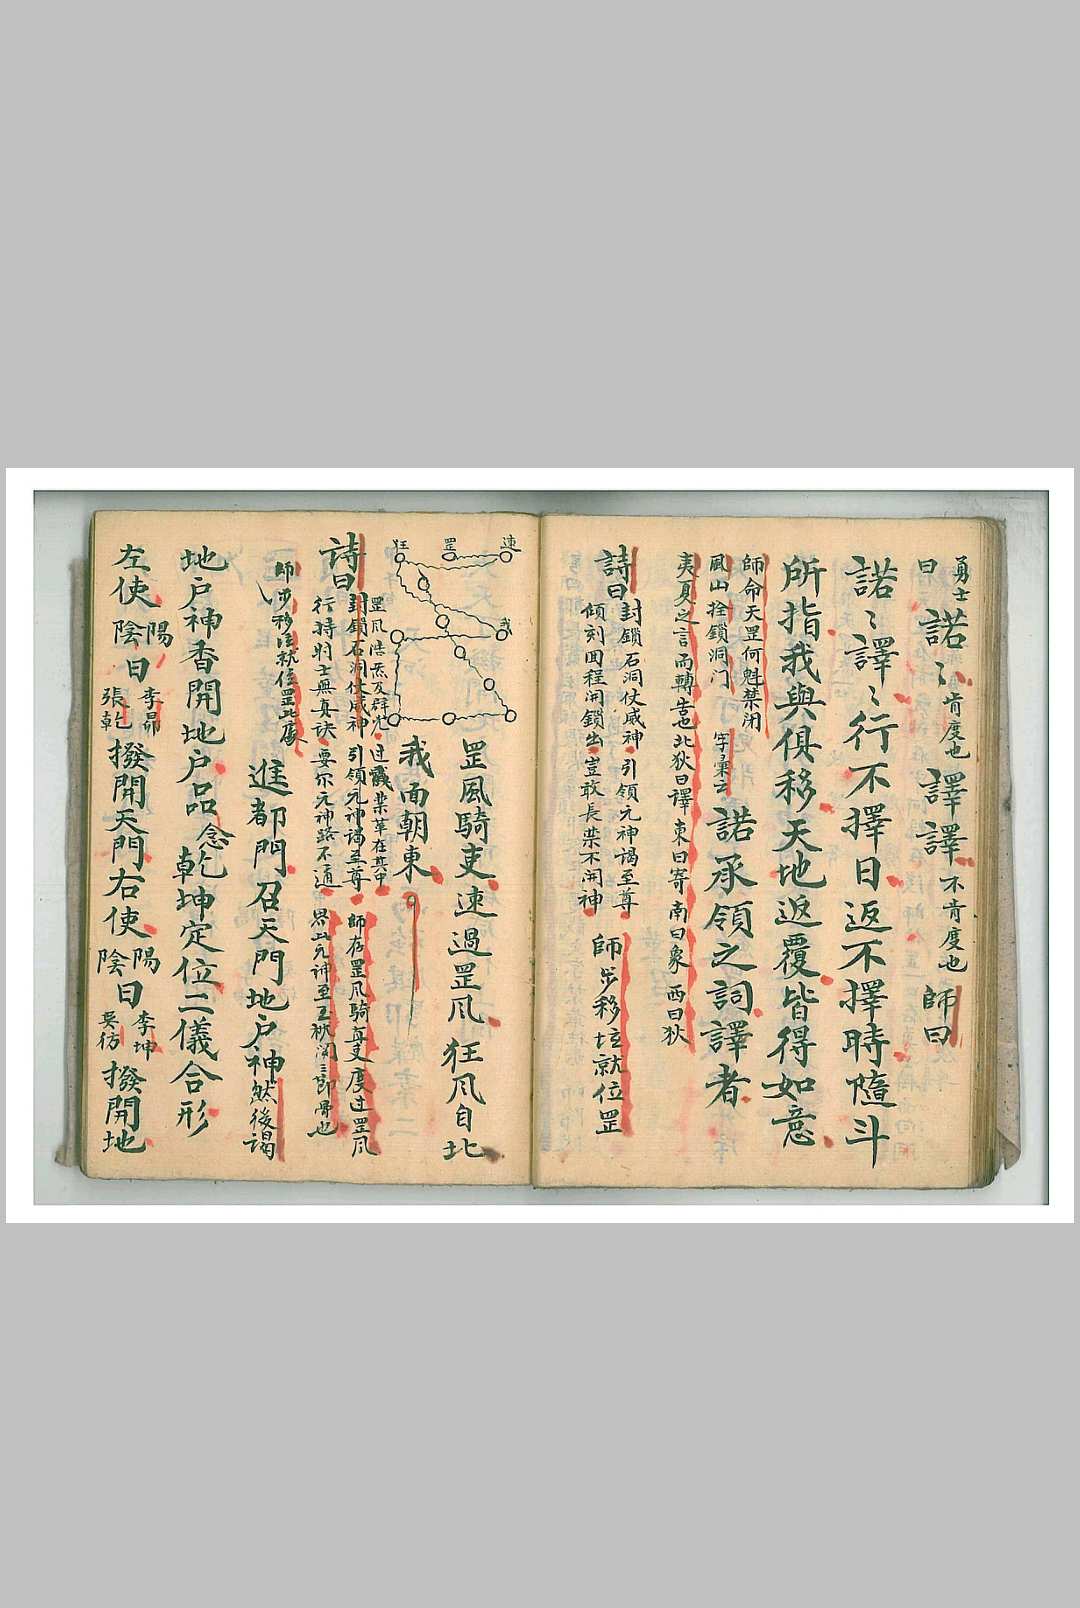 勇士
曰諾〻肯度也譯譯不肯度也師曰
諾〻譯〻行不擇日返不擇時隨斗
所指我與俱移天地返覆皆得如意
師命天罡何魁禁閉
風山拴鎖洞门字彙云諾承領之詞譯者
夷夏之言而轉告也北狄曰譯東曰寄南曰象西曰狄
詩曰封鎖石洞仗威神引領元神謁至尊
傾刻回程開鎖出豈敢長禁不開神師步移位就位罡
速
罡
狂
我
罡風騎吏速過罡凤狂凤自北
我面朝東
詩曰
封鎖石洞仗威神引領元神謁至尊
行持羽士無真訣要尔元神路不通
師步移位就位罡此處
進都門召天門地户神然後謁
地户神香開地户品念乾坤定位二儀合形
左使陰陽曰張乾李昴撥開天門右使陰陽曰吳彷李坤撥開地